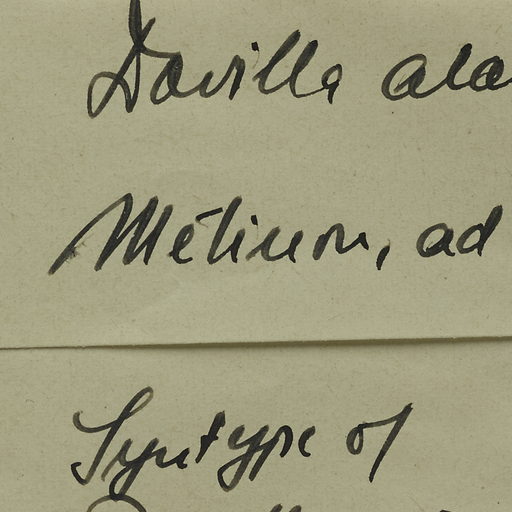 Davilla ala
Métinon, ad
Syntype of